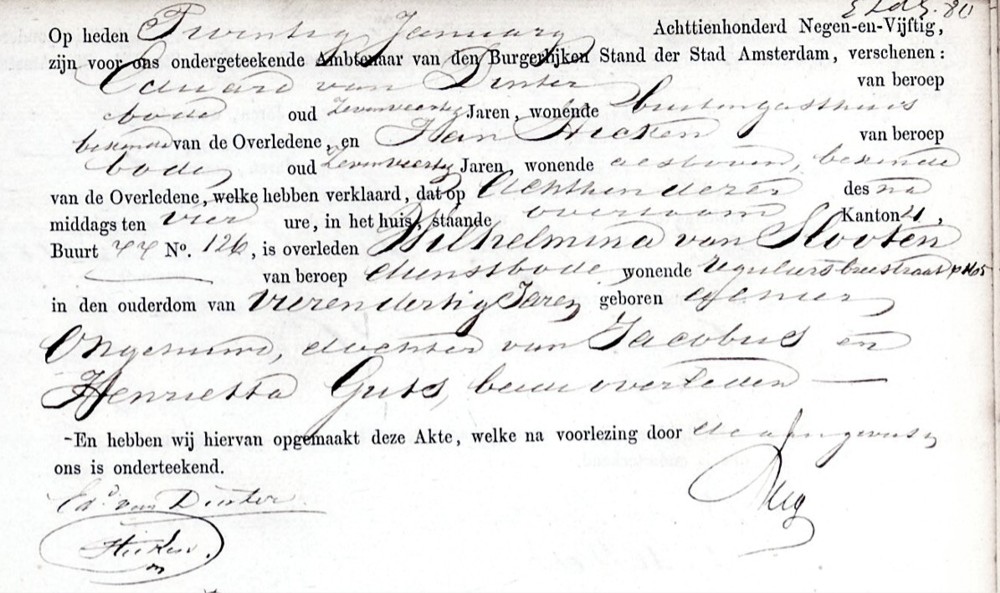 Op heden Twintig January Achttienhonderd Negen-en-Vijftig,
zijn voor ons ondergeteekende Ambtenaar van den Burgerlijken Stand der Stad Amsterdam, verschenen:
Eduard van Dinter van beroep
bode oud Zevenveertig Jaren, wonende buitengasthuis
bekende van de Overledene, en Han Hicken van beroep
bode, oud Zevenveertig Jaren, wonende als boven, bekende
van de Overledene, welke hebben verklaard, dat op Achttien dezer des na
middags ten vier ure, in het huis, staande overtoom Kanton 4,
Buurt YY No. 126, is overleden Wilhelmina van Slooten
van beroep dienstbode wonende Reguliersbreestraat
in den ouderdom van vierendertig Jaren geboren
Ongehuwd, dochter van Jacobus en
Henrietta Guts, beide overleden
-En hebben wij hiervan opgemaakt deze Akte, welke na voorlezing door de aangevers
ons is onderteekend.
Edd. van Dinter
Hicken